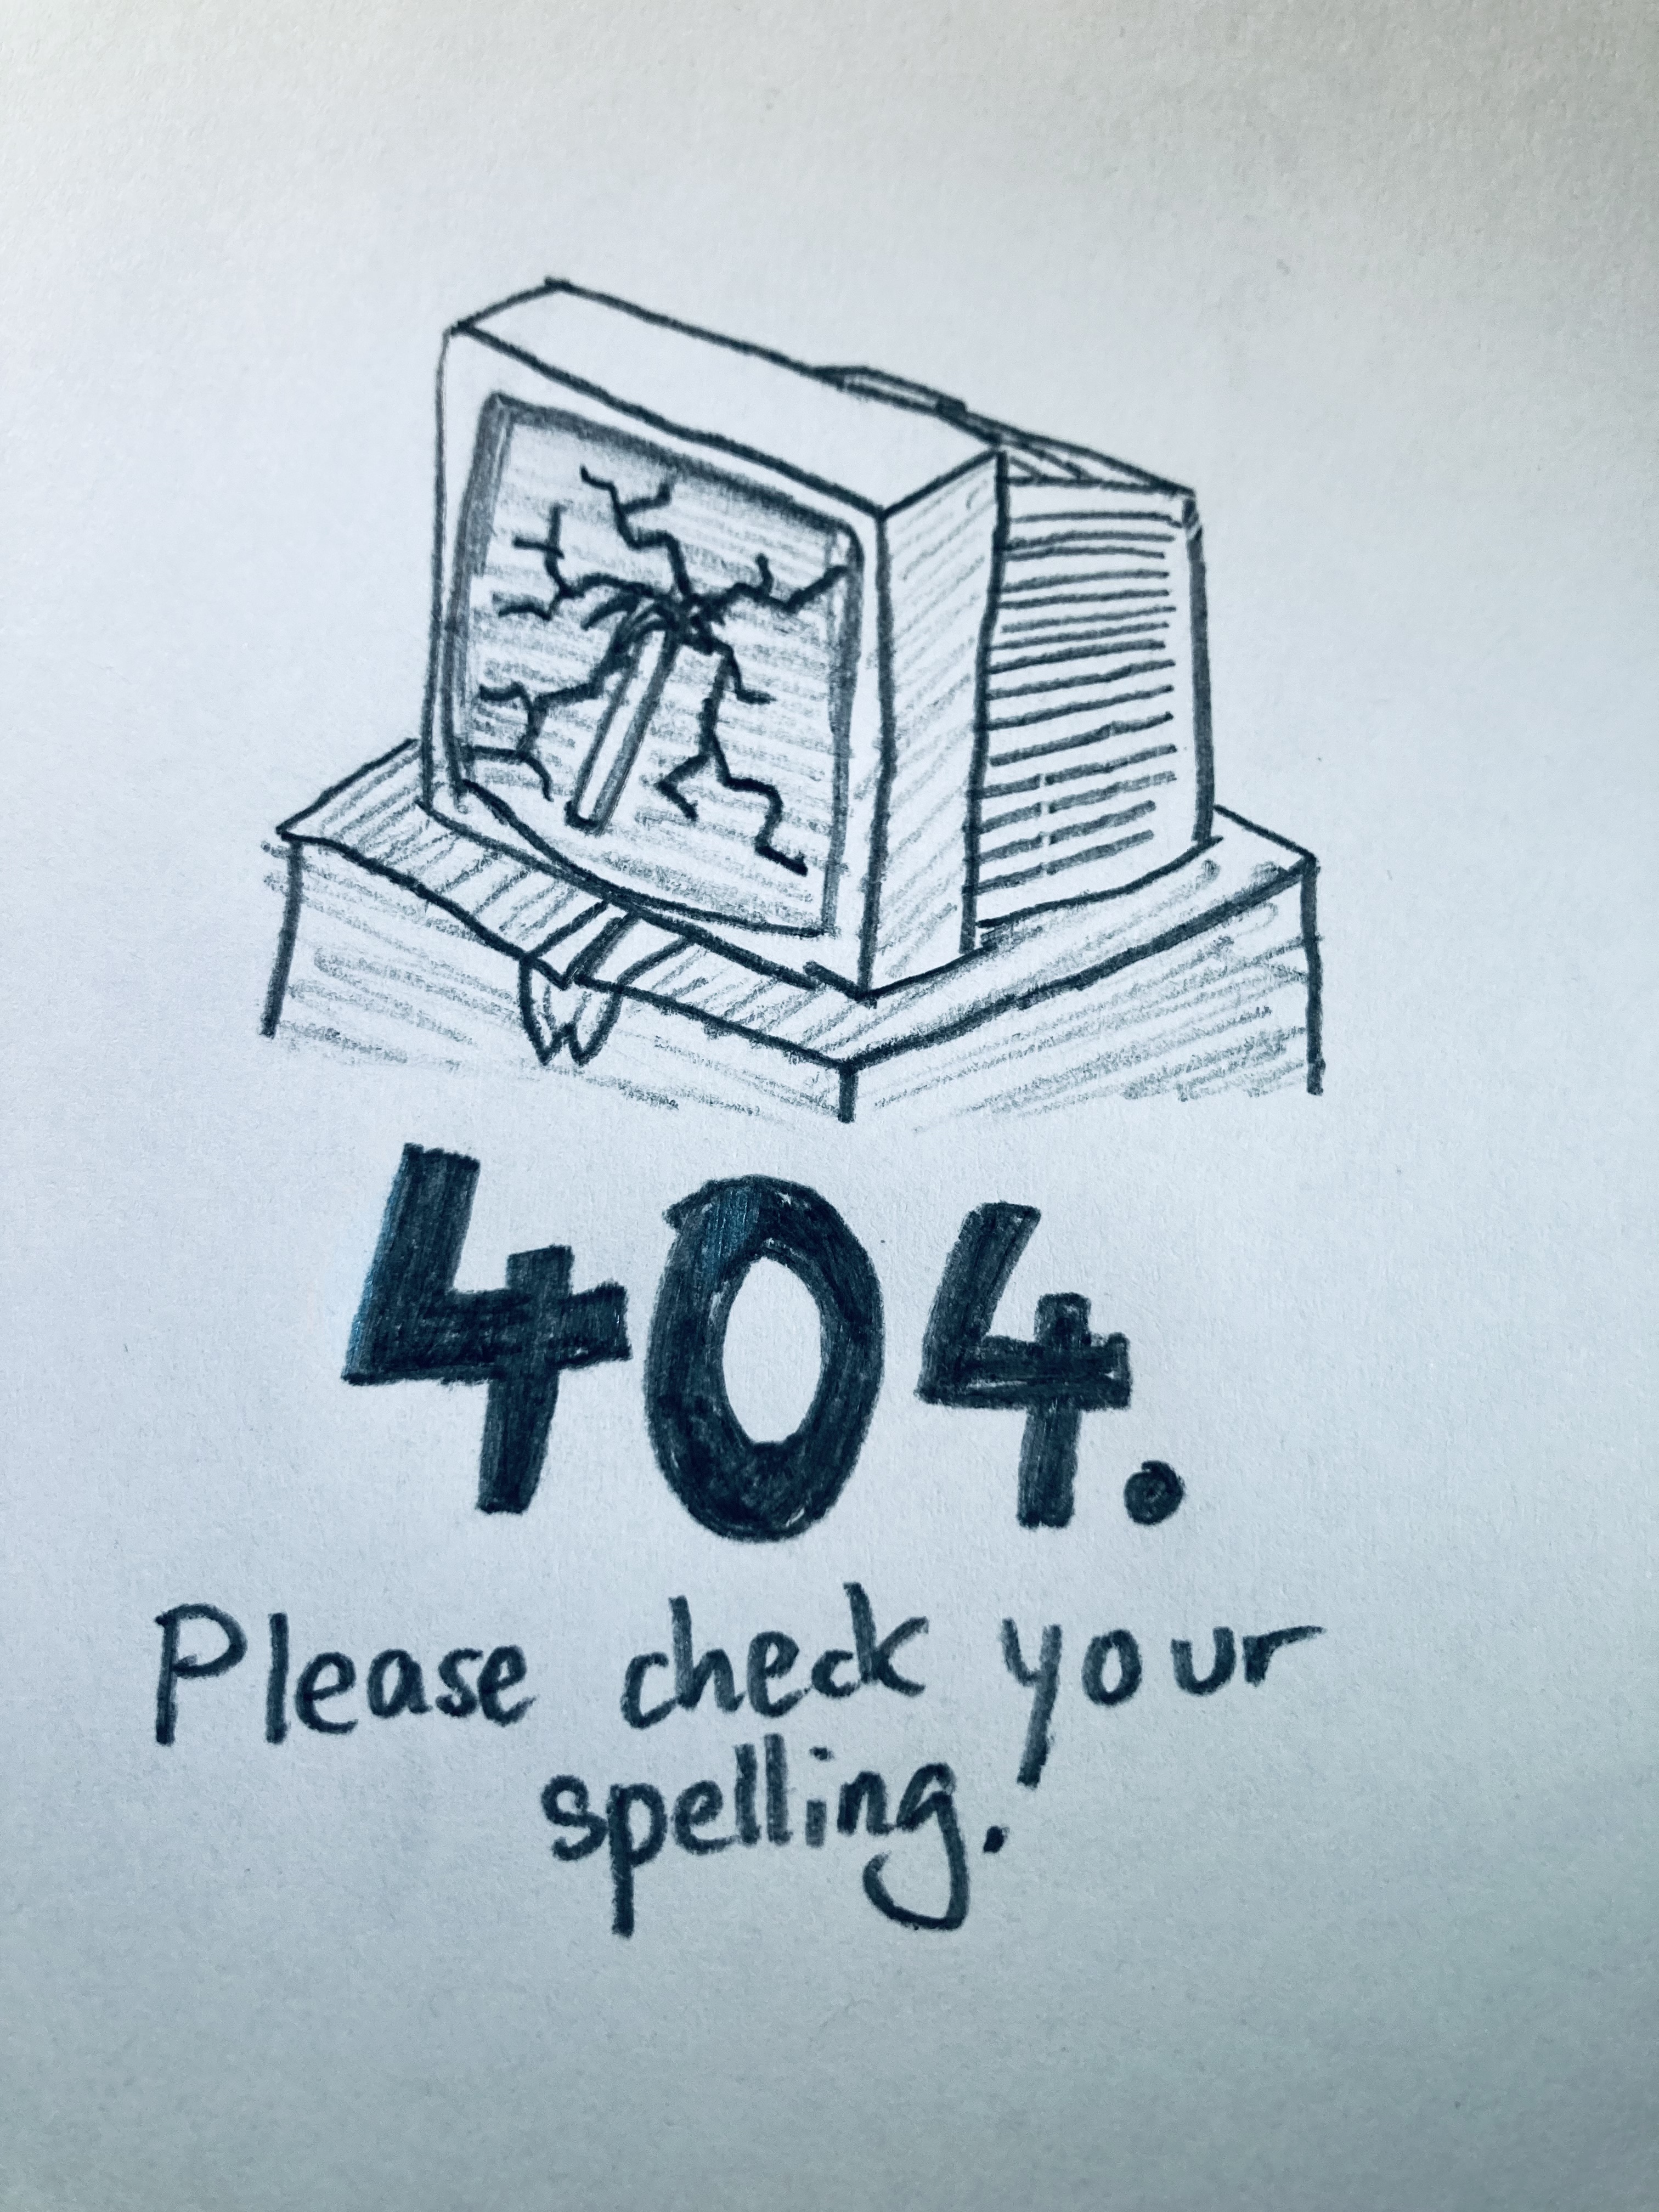 404.
Please check your
spelling!